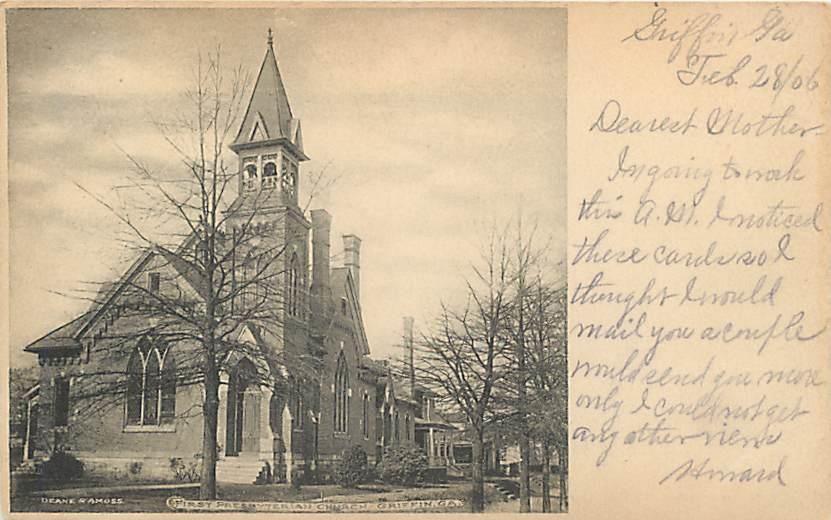 Griffin Ga
Feb. 28/06
Dearest Mother-
In going to work
this A.M. I noticed
these cards so I
thought I would
mail you a couple
would send you more
only I could not get
any other views
Howard
DEANE & AMOSS.
FIRST PRESBYTERIAN CHURCH, GRIFFIN, GA.